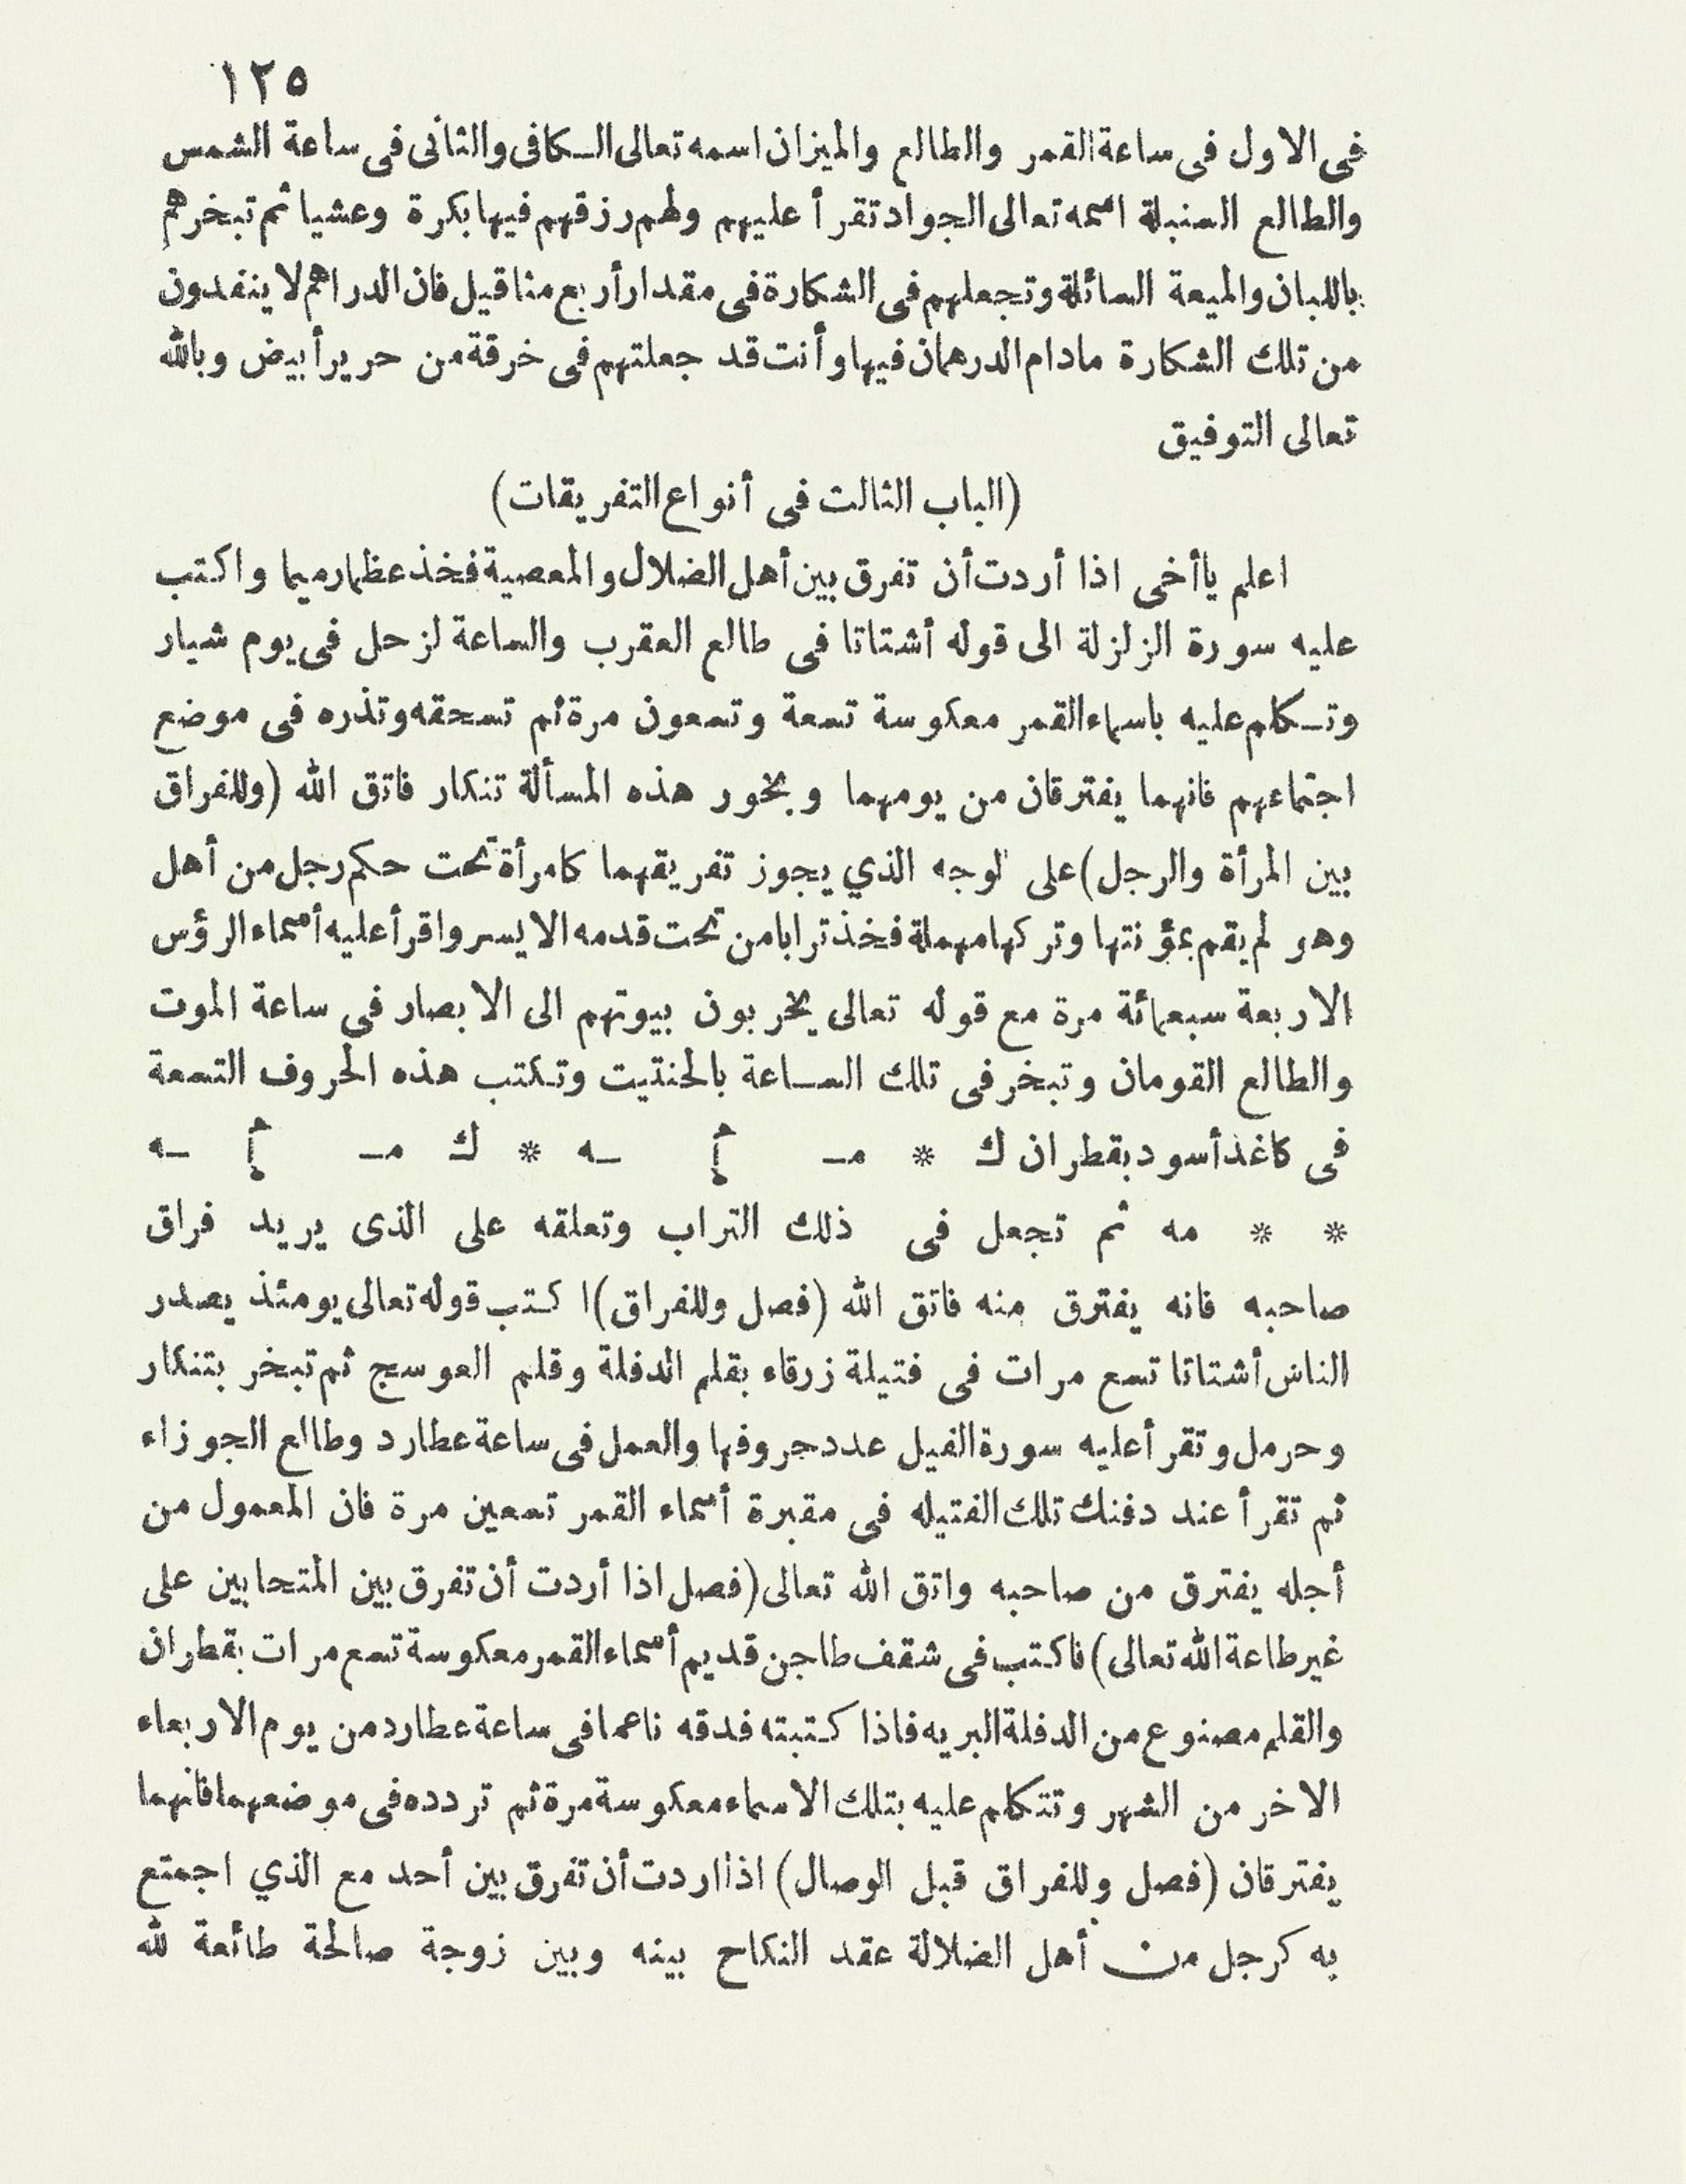 ١٢٥
فى الاول فى ساعة القمر والطالع والميزان اسمه تعالى الكافى والثانى فى ساعة الشمس
والطالع السنبلة اسمه تعالى الجواد تقرأ عليهم ولهم رزقهم فيها بكرة وعشيا ثم تبخرهم
باللبان والميعة السائلة وتجعلهم فى الشكارة فى مقدار أربع مثاقيل فان الدراهم لا ينفدون
من تلك الشكارة مادام الدرهمان فيها وأنت قد جعلتهم فى خرقة من حرير أبيض وبالله
تعالى التوفيق
(الباب الثالث فى أنواع التفريقات)
اعلم ياأخى اذا أردت أن تفرق بين أهل الضلال والمعصية فخذ عظما رميما واكتب
عليه سورة الزلزلة الى قوله أشتاتا فى طالع العقرب والساعة لزحل فى يوم شيار
وتكلم عليه باسماء القمر معكوسة تسعة وتسعون مرة ثم تسحقه وتذره فى موضع
اجتماعهم فانهما يفترقان من يومهما وبخور هذه المسألة تنكار فاتق الله (وللفراق
بين المرأة والرجل) على لوجه الذي يجوز تفريقهما كامرأة تحت حكم رجل من أهل
وهو لم يقم بمؤنتها وتركها مهملة فخذ ترابا من تحت قدمه الايسر واقرأ عليه أسماء الرؤس
الاربعة سبعمائة مرة مع قوله تعالى يخربون بيوتهم الى الابصار فى ساعة الموت
والطالع القومان وتبخر فى تلك الساعة بالحنتيت وتكتب هذه الحروف التسعة
فى كاغذ أسود بقطران ك * مـ ـه * ك مـ ـه
* * مه ثم تجعل فى ذلك التراب وتعلقه على الذى يريد فراق
صاحبه فانه يفترق منه فاتق الله (فصل وللفراق) اكتب قوله تعالى يومئذ يصدر
الناس أشتاتا تسع مرات فى فتيلة زرقاء بقلم الدفلة وقلم العوسج ثم تبخر بتنكار
وحرمل وتقرأ عليه سورة الفيل عدد حروفها والعمل فى ساعة عطارد وطالع الجوزاء
ثم تقرأ عند دفنك تلك الفتيله فى مقبرة أسماء القمر تسعين مرة فان المعمول من
أجله يفترق من صاحبه واتق الله تعالى (فصل اذا أردت أن تفرق بين المتحابين على
غير طاعة الله تعالى) فاكتب فى شقف طاجن قديم أسماء القمر معكوسة تسع مرات بقطران
والقلم مصنوع من الدفلة البريه فاذا كتبته فدقه ناعما فى ساعة عطارد من يوم الاربعاء
الاخر من الشهر وتتكلم عليه بتلك الاسماء معكوسة مرة ثم تردده فى موضعهما فانهما
يفترقان (فصل وللفراق قبل الوصال) اذا اردت أن تفرق بين أحد مع الذي اجمتع
به كرجل من أهل الضلالة عقد النكاح بينه وبين زوجة صالحة طائعة لله